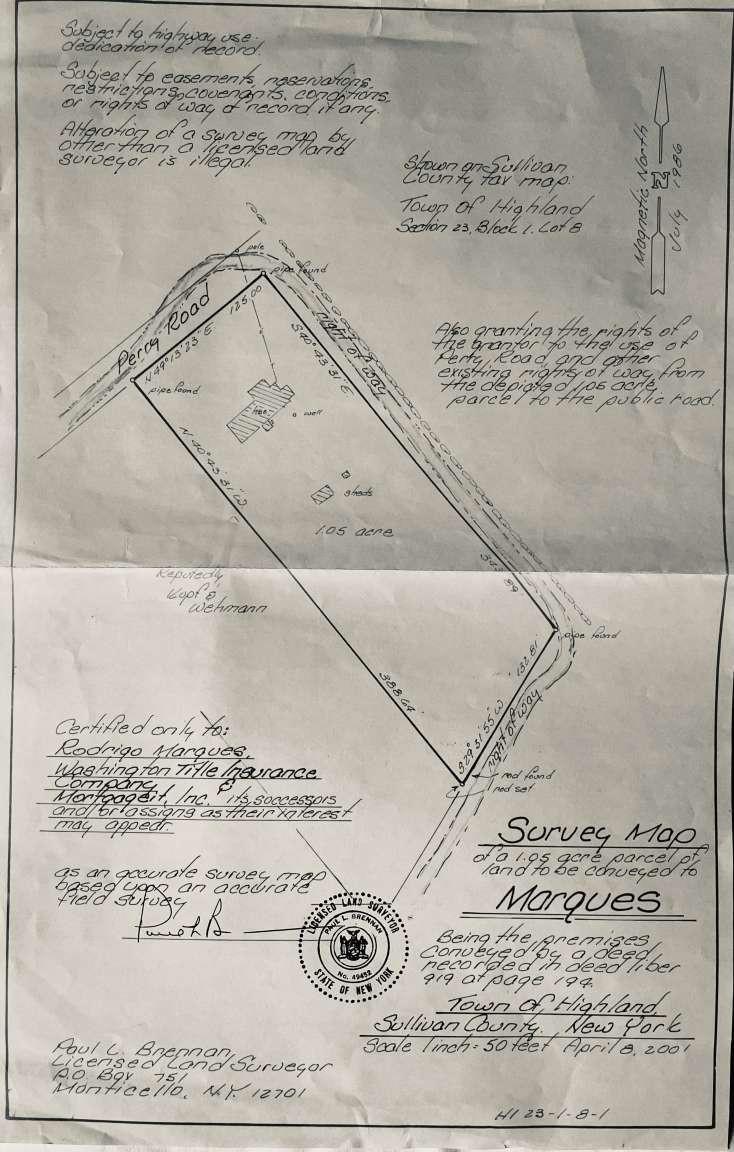 Subject to highway use
dedication of record.
Subject to easements, reservations,
restrictions, covenants, conditions,
or rights of way of record if any.
Alteration of a survey map by
other than a licensed land
surveyor is illegal.
Shown on Sullivan
County tax map:
Town of Highland
Section 23, Block 1, Lot 8
Magnetic North
July 1986
pole
pipe found
125.00
Perry Road
N 49° 13' 23" E
pipe found
right of way
S 40° 43' 31" E
Also granting the rights of
the grantor to the use of
Perry Road and other
existing rights of way from
the depicted 1.05 acre
parcel to the public road.
well
sheds
N 40° 43' 31" W
1.05 acre
343.89
Reputedly
Kopf &
Wehmann
pipe found
132.81'
388.64'
S 29° 31' 55" W
right of way
rod found
rod set
Certified only to:
Rodrigo Marques,
Washington Title Insurance
Company &
Mortgageit, Inc. its successors
and/or assigns as their interest
may appear.
as an accurate survey map
based upon an accurate
field survey
LICENSED LAND SURVEYOR
PAUL L. BRENNAN
No. 49452
STATE OF NEW YORK
Survey Map
of a 1.05 acre parcel of
land to be conveyed to
Marques
Being the premises
conveyed by a deed
recorded in deed liber
919 at page 194.
Town of Highland,
Sullivan County, New York
Scale 1 inch = 50 feet April 8, 2001
Paul L. Brennan
Licensed Land Surveyor
P.O. Box 751
Monticello, N.Y. 12701
HI 23-1-8-1